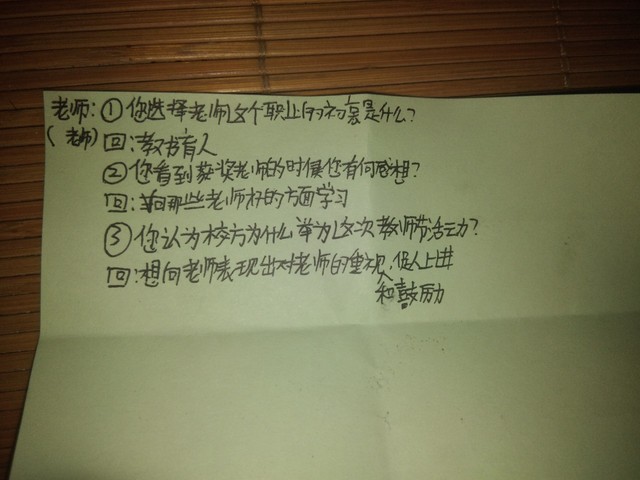 老师:①您选择老师这个职业的初衷是什么?
(老师)回:教书育人
②您看到获奖老师的时候您有何感想?
回:向那些老师好的方面学习
③您认为校方为什么举办这次教师节活动?
回:想向老师表现出对老师的重视和鼓励,促人上进